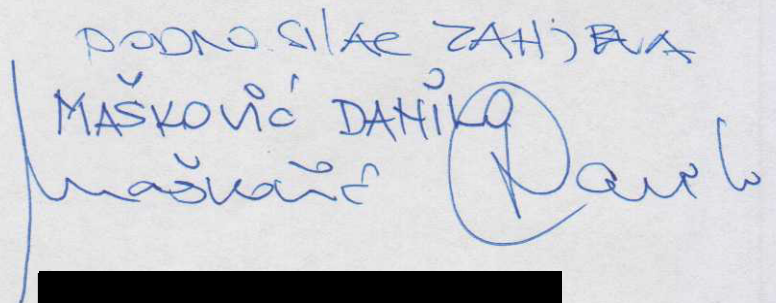 PODNOSILAC ZAHTJEVA
MAŠKOVIĆ DANILO
Mašković Danilo